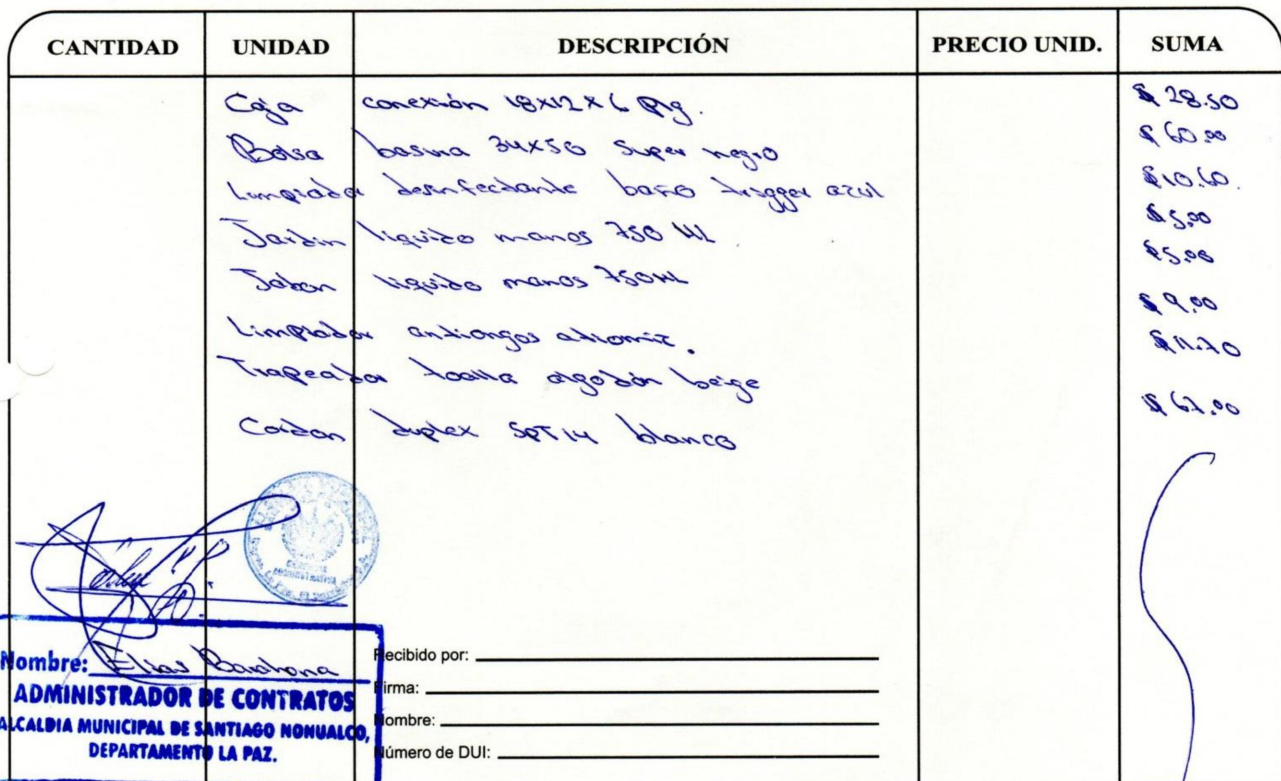 CANTIDAD UNIDAD DESCRIPCIÓN PRECIO UNID. SUMA
Caja conexión 18x12x6 Plg. $28.50
Bolsa basura 34x50 Super negro $60.00
Limpiador desinfectante baño trigger azul $10.60
Jardin liquido manos 750 ML $5.00
Jabon liquido manos 750ML $5.00
Limpiador antiongos $9.00
Trapeador toalla algodón beige $11.70
Cordon duplex SPT 14 blanco
Nombre: Elias Barahona
ADMINISTRADOR DE CONTRATOS
ALCALDIA MUNICIPAL DE SANTIAGO NONUALCO,
DEPARTAMENTO LA PAZ.
Recibido por:
Firma:
Nombre:
Número de DUI: